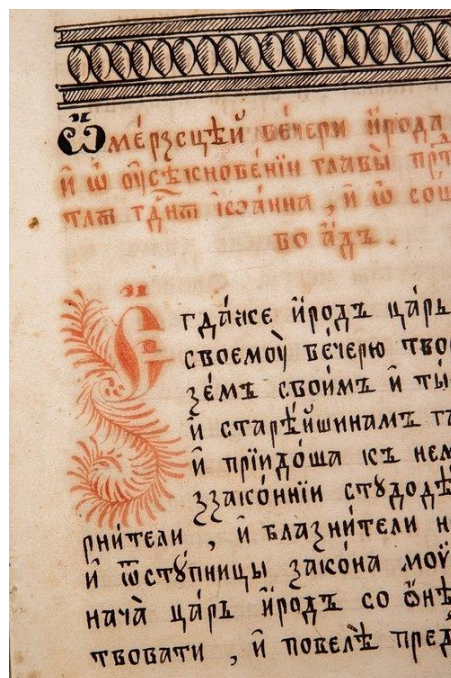 Ѽ ме́рзсцѣй ве́чери и҆́рода
и҆ ѡ҆ ᲂу҆сѣкнове́нїи главы̀ прⷣ
тѧ гдⷭ҇нѧ і҆ѡа́нна , и҆ ѡ҆ сош
во а҆́дъ .
Є҆гда́же и҆́родъ ца́рь
своемᲂу̀ ве́черю тво
зе́мъ свои́мъ и҆ ты́
и҆ старѣ́йшинамъ га
и҆ прїидо́ша къ нем
ззако́ннїи стꙋдодѣ
рни́тели , и҆ блазни́тели н
и҆ ѿстꙋ́пницы зако́на моѵ
нача̀ ца́рь и҆́родъ со ѻ҆нѣ
твовати , и҆ повелѣ̀ пред